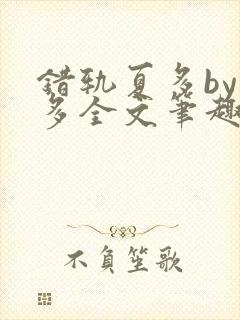 错轨夏多by
多全文笔趣
不負笙歌